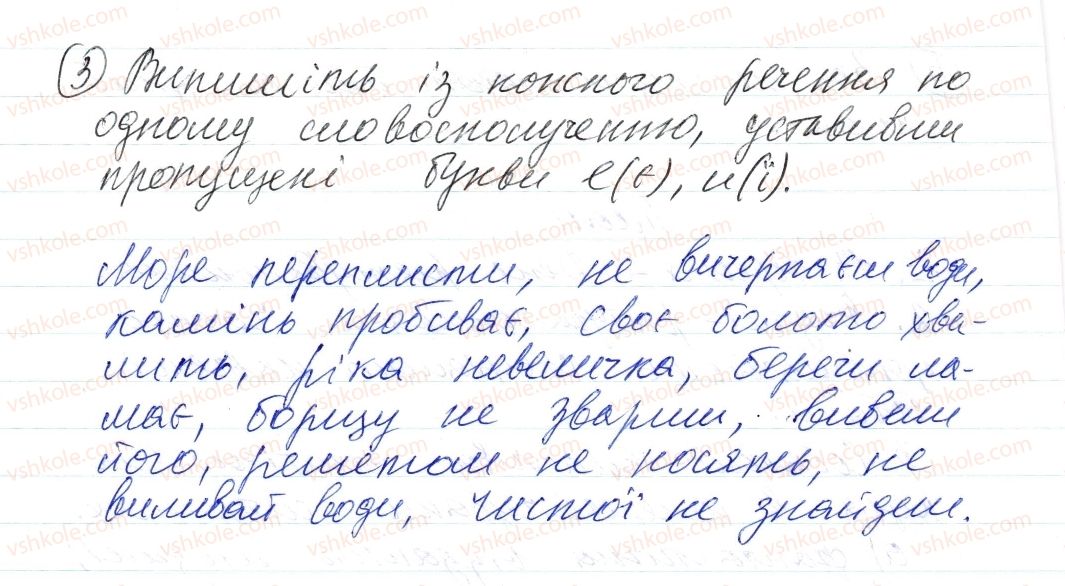 ③ Випишіть із кожного речення по
одному словосполученню, уставивши
пропущені букви е(є), и(ї).
Море переплисти, не вичерпаєш води,
камінь пробиває, своє болото хва-
лить, ріка невеличка, береги ла-
має, борщу не звариш, вивели
його, решетом не носять, не
виливай води, чистої не знайдеш.